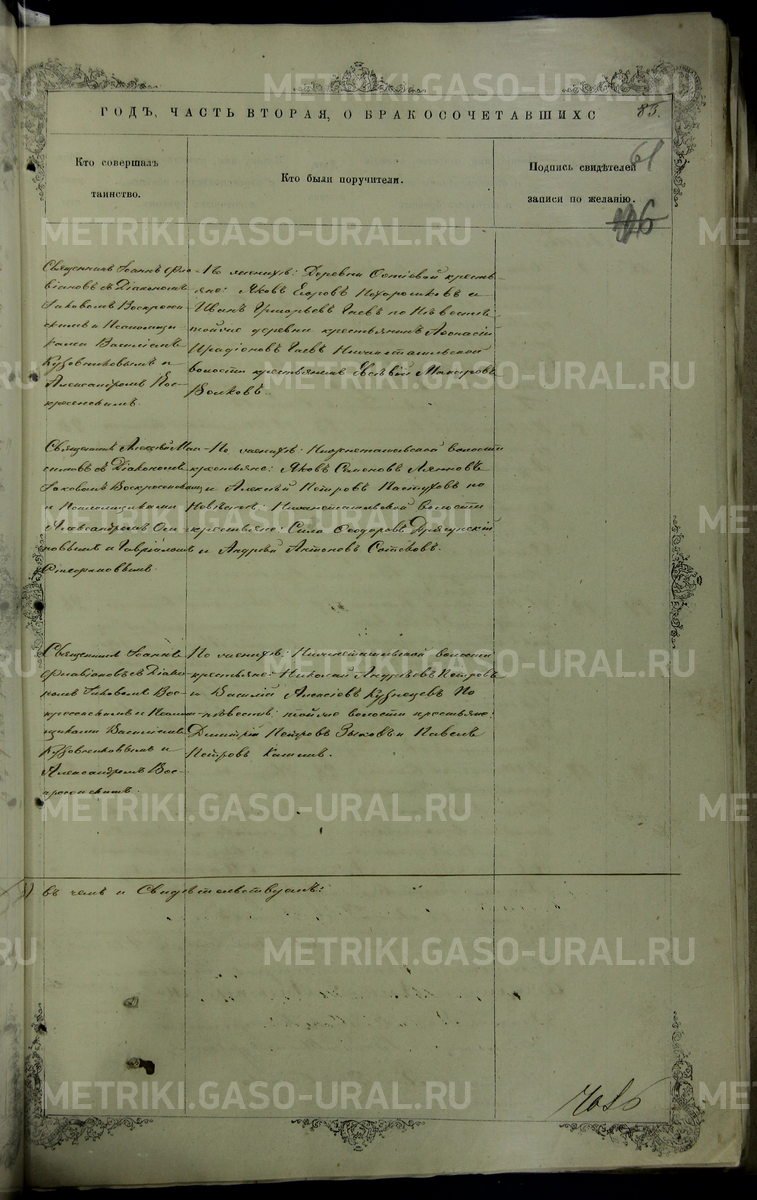 ГОДЪ, ЧАСТЬ ВТОРАЯ, О БРАКОСОЧЕТАВШИХС
83.
61
Кто совершалъ
таинство.
Кто были поручители.
Подпись свидѣтелей
записи по желанію.
Священникъ Іоаннъ Фла-
віановъ съ Діакономъ
Іаковомъ Воскресен-
скимъ и Псаломщи-
ками Василіемъ
Кузовниковымъ и
Александромъ Вос-
кресенскимъ.
По женихѣ: Деревни крестья-
яне: Яковъ Егоровъ и
Иванъ Григорьевъ Гаевъ по Невѣстѣ:
тойже деревни крестьянинъ Аѳонасій
Гаевъ Нижнетагильской
волости крестьянинъ Евсѣвій
Волковъ.
Священникъ Алексѣй Мак-
симовъ съ Діакономъ
Іаковомъ Воскресенскимъ
и Псаломщиками
Александромъ
и Гавріиломъ
По женихѣ: Нижнетагильской волости
крестьяне: Яковъ Семеновъ
и Алексѣй Петровъ Пастуховъ по
Невѣстѣ: Нижнетагильской волости
крестьяне: Сила Ѳеодоровъ
и Андрей Антоновъ
Священникъ Іоаннъ
Флавіановъ съ Діако-
номъ Іаковомъ Вос-
кресенскимъ и Псалом-
щиками Василіемъ
Кузовниковымъ и
Александромъ Вос-
кресенскимъ.
По женихѣ: Нижнетагильской волости
крестьяне: Николай Андреевъ Петровъ
и Василій Алексѣевъ Кузнецовъ По
невѣстѣ: тойже волости крестьяне:
Дмитрій Петровъ Зыковъ и Павелъ
Петровъ
въ чемъ и Свидѣтельствуемъ:
METRIKI.GASO-URAL.RU